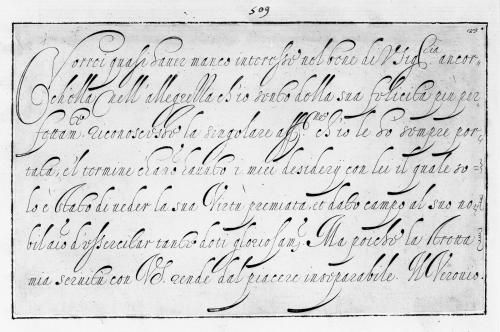 509
Vorrei quasi hauer manco interesse nel bene di V. Sig.ria ancor-
che nell' allegrezza ch'io sento della sua felicita piu per
fettam. riconoscesse la singolare aff.ne ch'io le ho sempre por-
tata, e'l termine c'hauro hauuto i miei desiderij con lei il quale so-
lo è stato di ueder la sua Virtù premiata, et dato campo al suo no
bil aïo d'essercitar tante doti gloriosam. Ma poiche la stretta
mia seruitù con V.S. rende dal piacere inseparabile. Il Veronio.